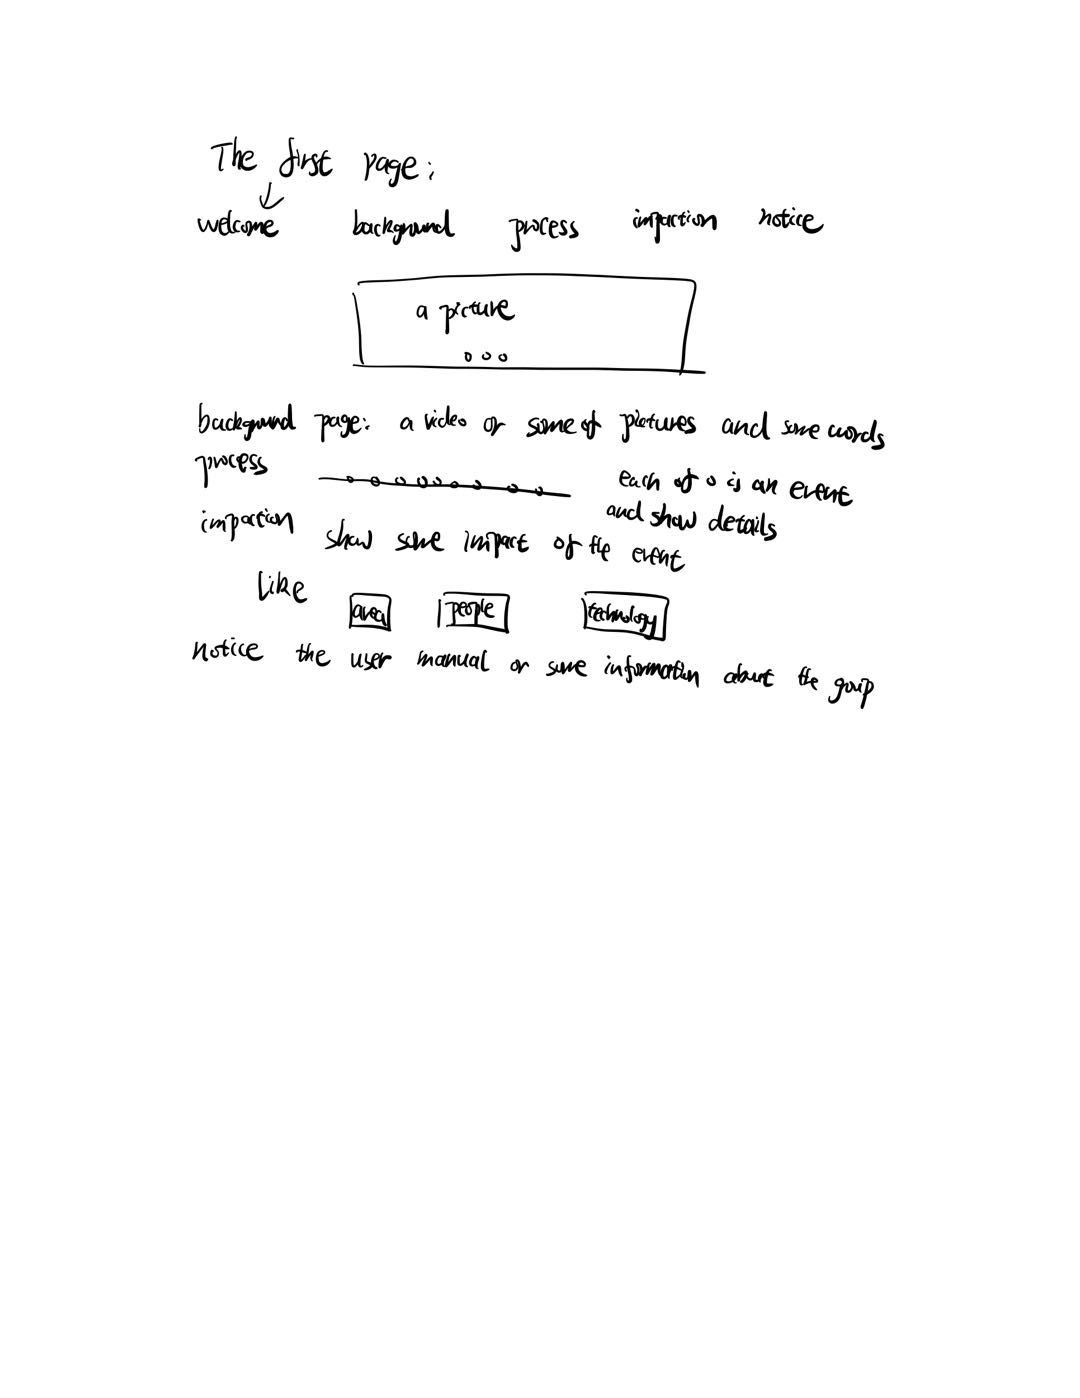 The first page:
welcome background process impaction notice
a picture
background page: a video or some of pictures and some words
process each of o is an event
and show details
impaction show some impact of the event
like area people technology
notice the user manual or some information about the group